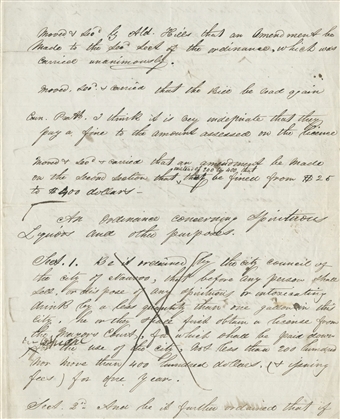 Moved & Secd by Ald. Hills that an Amendment be
made to the Secd Sect of the ordinance, which was
carried unanimously.
Moved. Secd. & carried that the Bill be read again
Coun. Pratt. I think it is very indefinate that they
pay a fine to the amount assessed on the license
Moved & Secd & carried that an amendment be made
instead of 200 & 400, that
on the Second Section that they be fined from $25
to $400 dollars—
An Ordinance concerning Spirituous
Liquors and other purposes.
Sect. 1. Be it ordained by the city council of
the city of Nauvoo, that before any person shall
sell or dispose of any spiritous or intoxicating
drink by a less quantity than one gallon in this
city, he or they shall first obtain a license from
the Mayors Court, for which shall be paid down
for the use of the city, not less than 200 hundred
nor more than 400 hundred dollars. (& opening
fees) for one year.
Sect. 2d. And be it further ordained that if